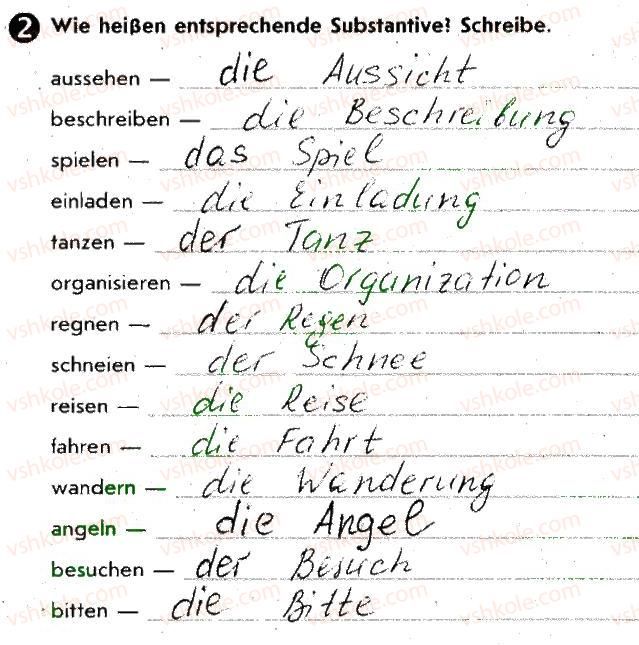 2 Wie heißen entsprechende Substantive? Schreibe.
aussehen — die Aussicht
beschreiben — die Beschreibung
spielen — das Spiel
einladen — die Einladung
tanzen — der Tanz
organisieren — die Organization
regnen — der Regen
schneien — der Schnee
reisen — die Reise
fahren — die Fahrt
wandern — die Wanderung
angeln — die Angel
besuchen — der Besuch
bitten — die Bitte